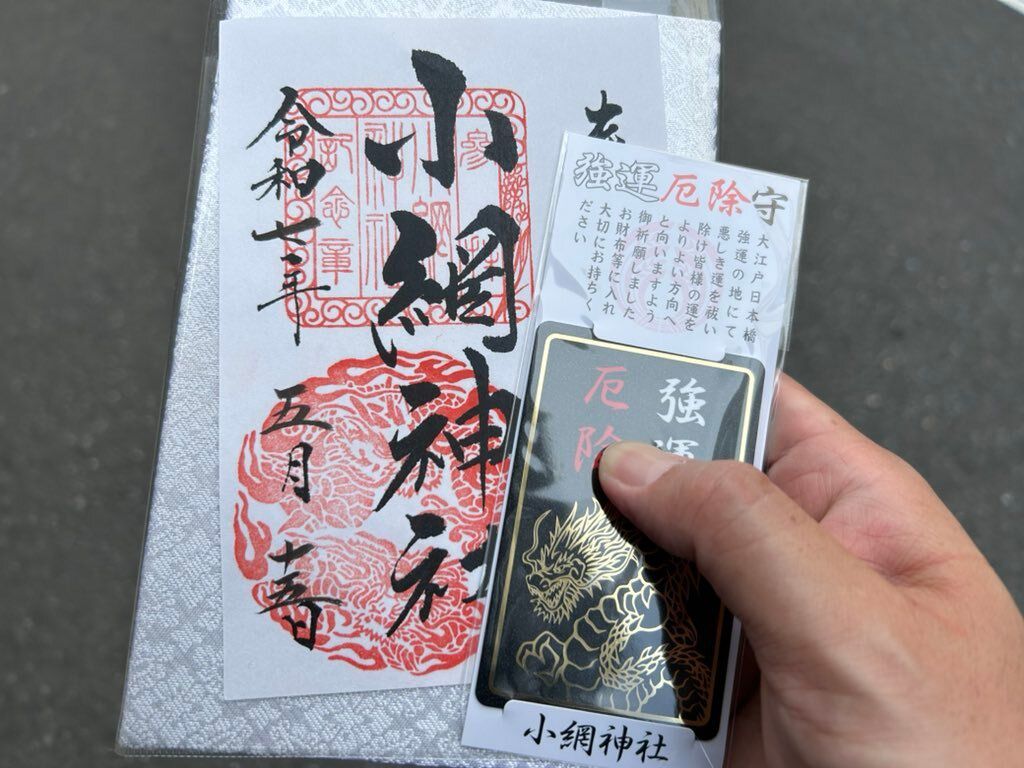 小網神社
令和七年
五月十五日
強運厄除守
大江戸日本橋
強運の地にて
悪しき運を祓い
除け皆様の運を
よりよい方向へ
と向いますよう
御祈願しました
お財布等に入れ
大切にお持ちく
ださい
強運
厄除
小網神社